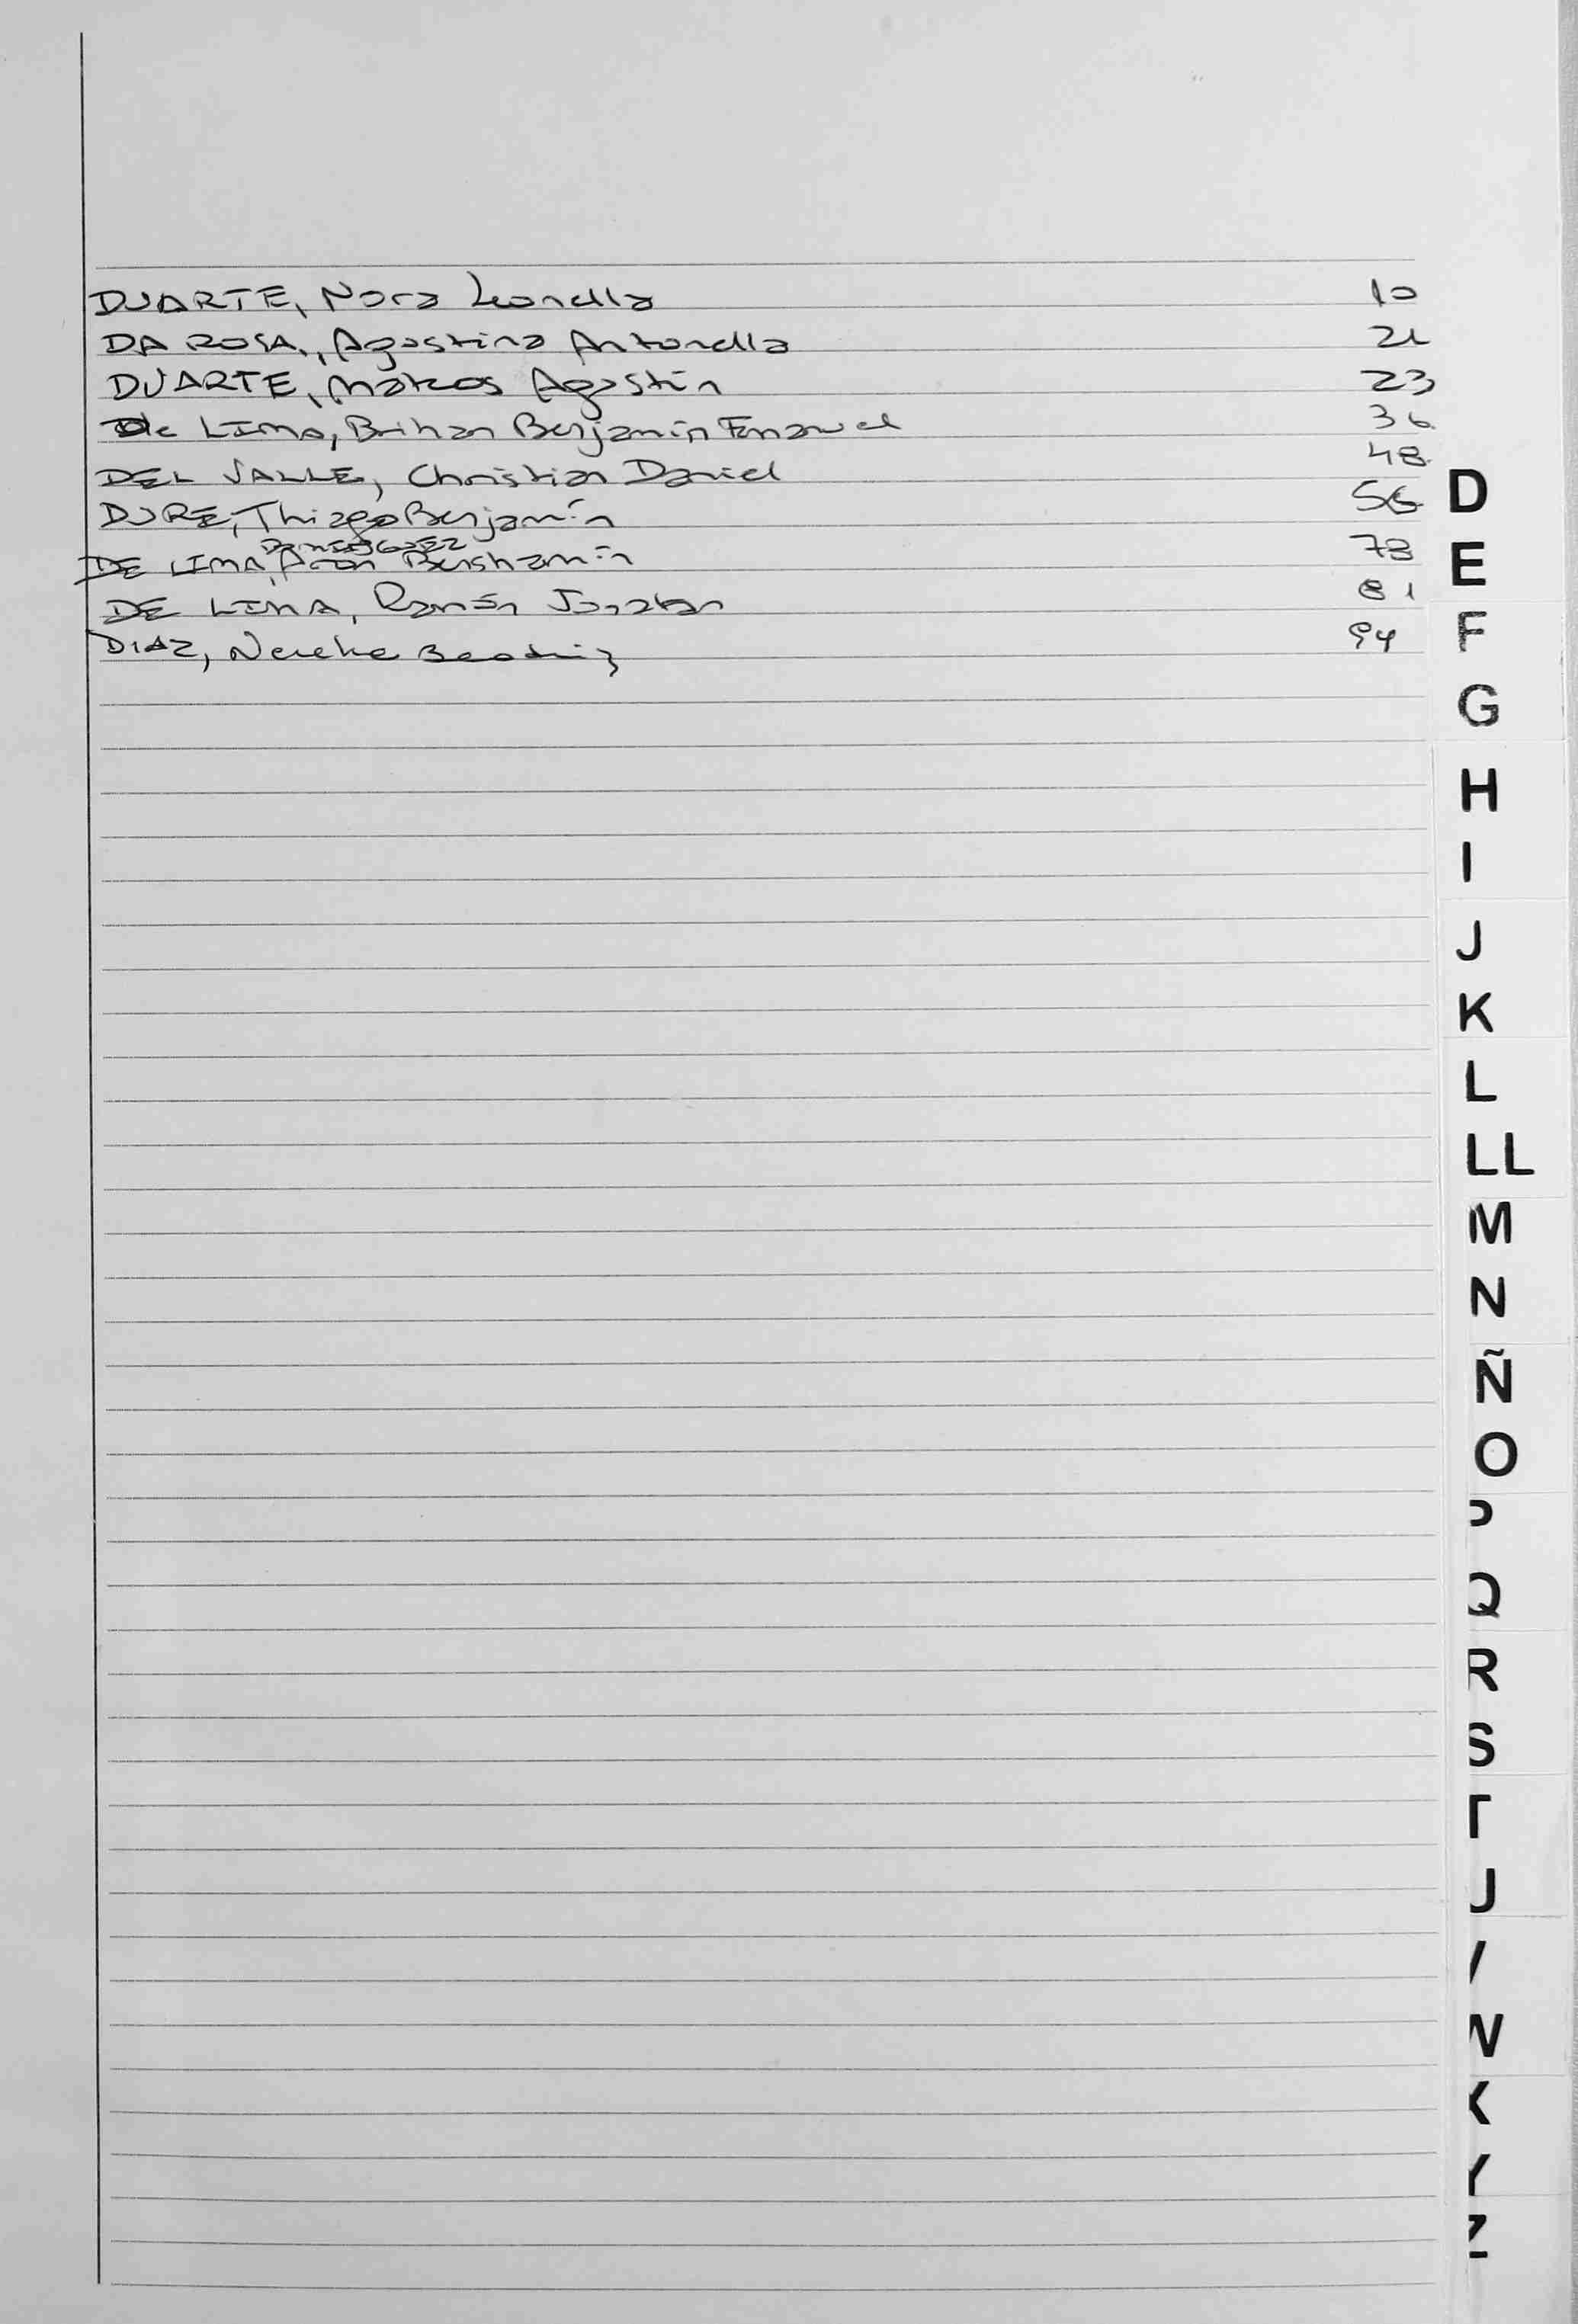 DUARTE, Nora Leonella 10
DA ROSA, Agostina Antonella 21
DUARTE, Makcos Agostín 23
De LIMA, Brihan Benjamín Emanuel 36
DEL VALLE, Christian Daniel 48
DURE, Thiago Benjamín 56
DOMINGUEZ
DE LIMA, Aron Benshamín 73
DE LIMA, Ramón Jonatan 81
DIAZ, Nereke Beatriz 94
D
E
F
G
H
I
J
K
L
LL
M
N
Ñ
O
P
Q
R
S
T
U
V
W
X
Y
Z